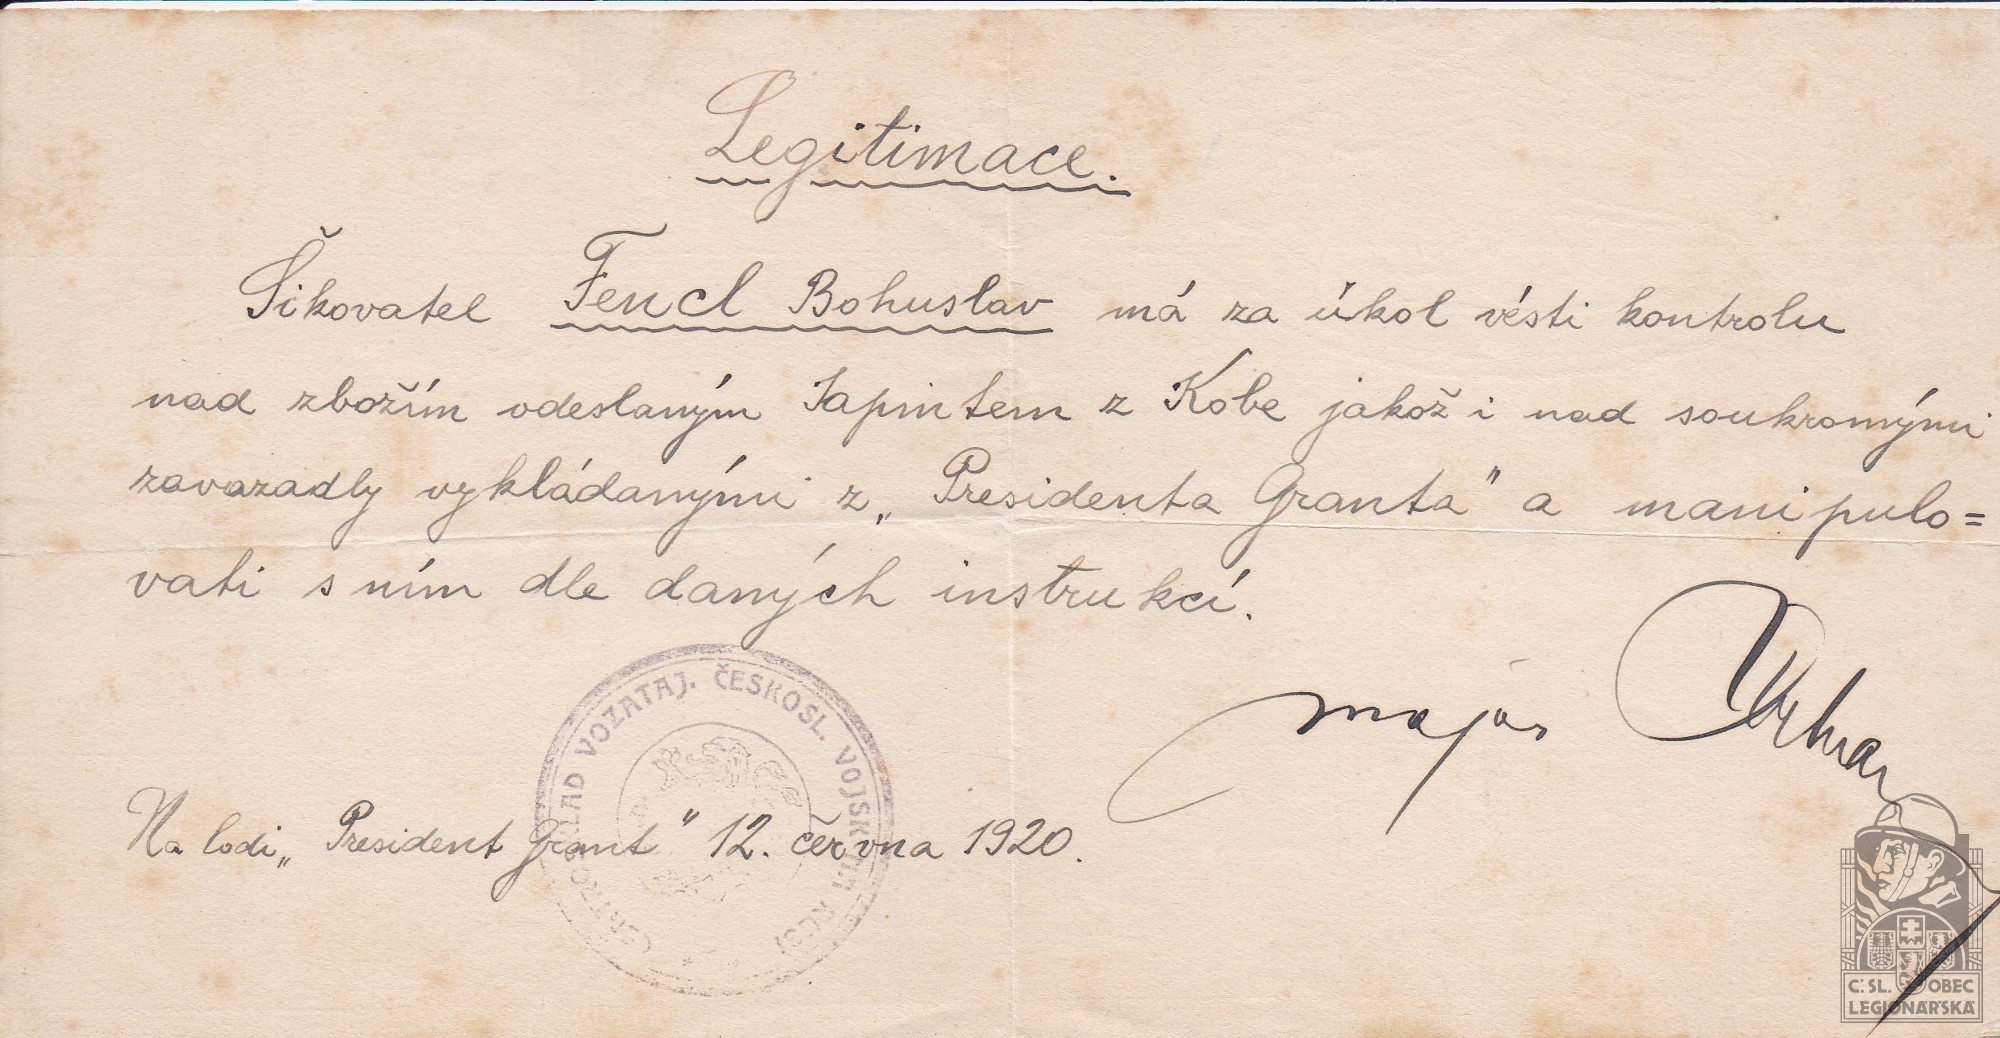 Legitimace.
Šikovatel Fencl Bohuslav má za úkol vésti kontrolu
nad zbožím odeslaným Japintem z Kobe jakož i nad soukromými
zavazadly vykládanými z „Presidenta Granta" a manipulo=
vati s ním dle daných instrukcí.
major
VOZATAJ. ČESKOSL. VOJSK
Na lodi „President Grant" 12. června 1920.
Č. SL. OBEC
LEGIONÁŘSKÁ